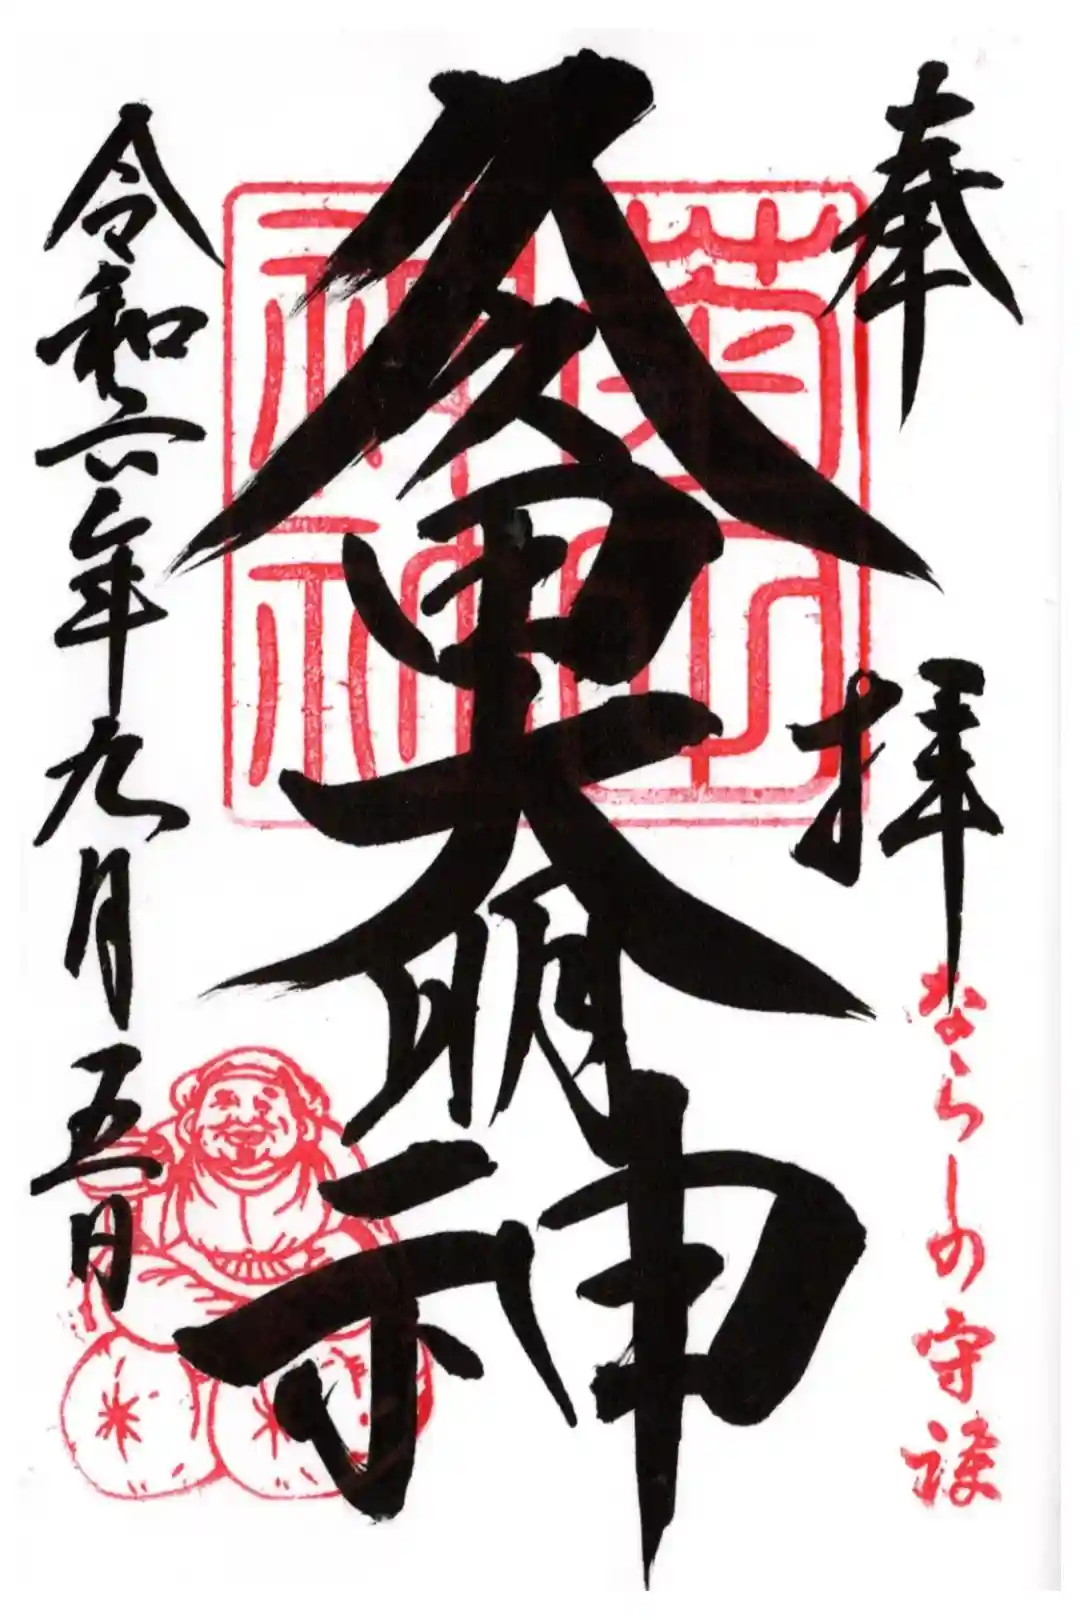 奉拝
ならしの守護
久久田大明神
菊田
神社
令和六年九月五日